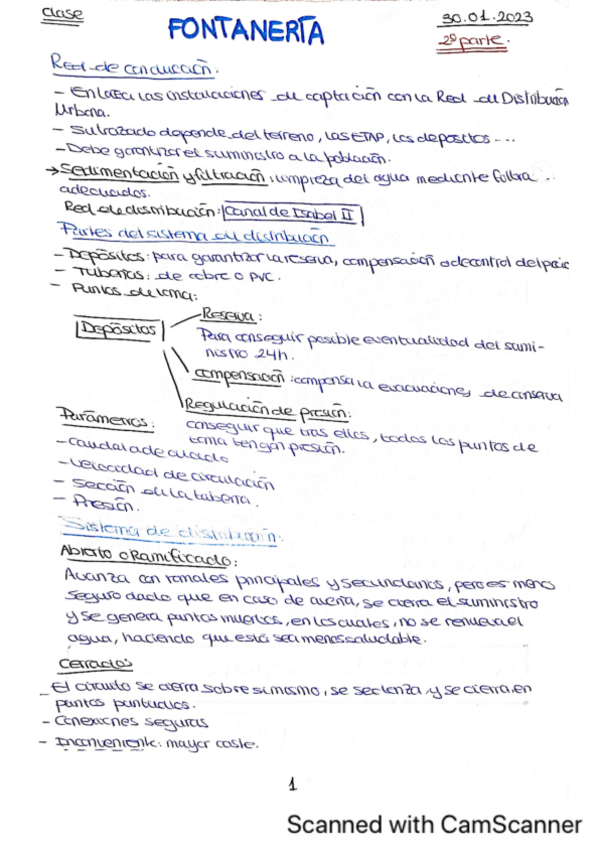 Clase
30.01.2023
FONTANERÍA
2º parte.
Red de conducción:
- Enlaza las instalaciones de captación con la Red de Distribución
Urbana.
- Su trazado depende del terreno, las ETAP, los depósitos ...
- Debe garantizar el suministro a la población.
→ Sedimentación y filtración: limpieza del agua mediante filtros
adecuados.
Red de distribución: Canal de Isabel II
Partes del sistema de distribución
- Depósitos: para garantizar la reserva, compensación o de control de
- Tuberías: de cobre o PVC.
- Puntos de toma:
Depósitos
Reserva:
Para conseguir posible eventualidad del sumi-
nistro 24h.
Compensación: compensa la evacuaciones de
Regulación de presión:
conseguir que tras ellos, todos los puntos de
toma tengan presión.
Parámetros:
- Caudal adecuado
- Velocidad de circulación
- Sección de la tubería.
- Presión.
Sistema de distribución:
Abierto o Ramificado:
Avanza con ramales principales y secundarios, pero es menos
seguro dado que en caso de avería, se cierra el suministro
y se genera puntos muertos, en los cuales, no se renueva el
agua, haciendo que esta sea menos saludable.
Cerrados
- El circuito se cierra sobre si mismo, se y se cierra en
puntos puntuales.
- Conexiones seguras
- Inconveniente: mayor coste.
1
Scanned with CamScanner